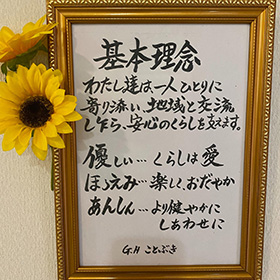 基本理念
わたし達は一人ひとりに
寄り添い、地域と交流
し乍ら、安心のくらしを支えます。
優しい…くらしは愛
ほゝえみ…楽しく、おだやか
あんしん…より健やかに
しあわせに
G.H ことぶき